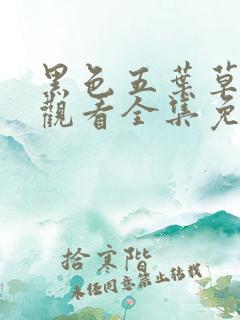 黑色五葉草
觀看全集免
拾寒階
未经同意禁止转载